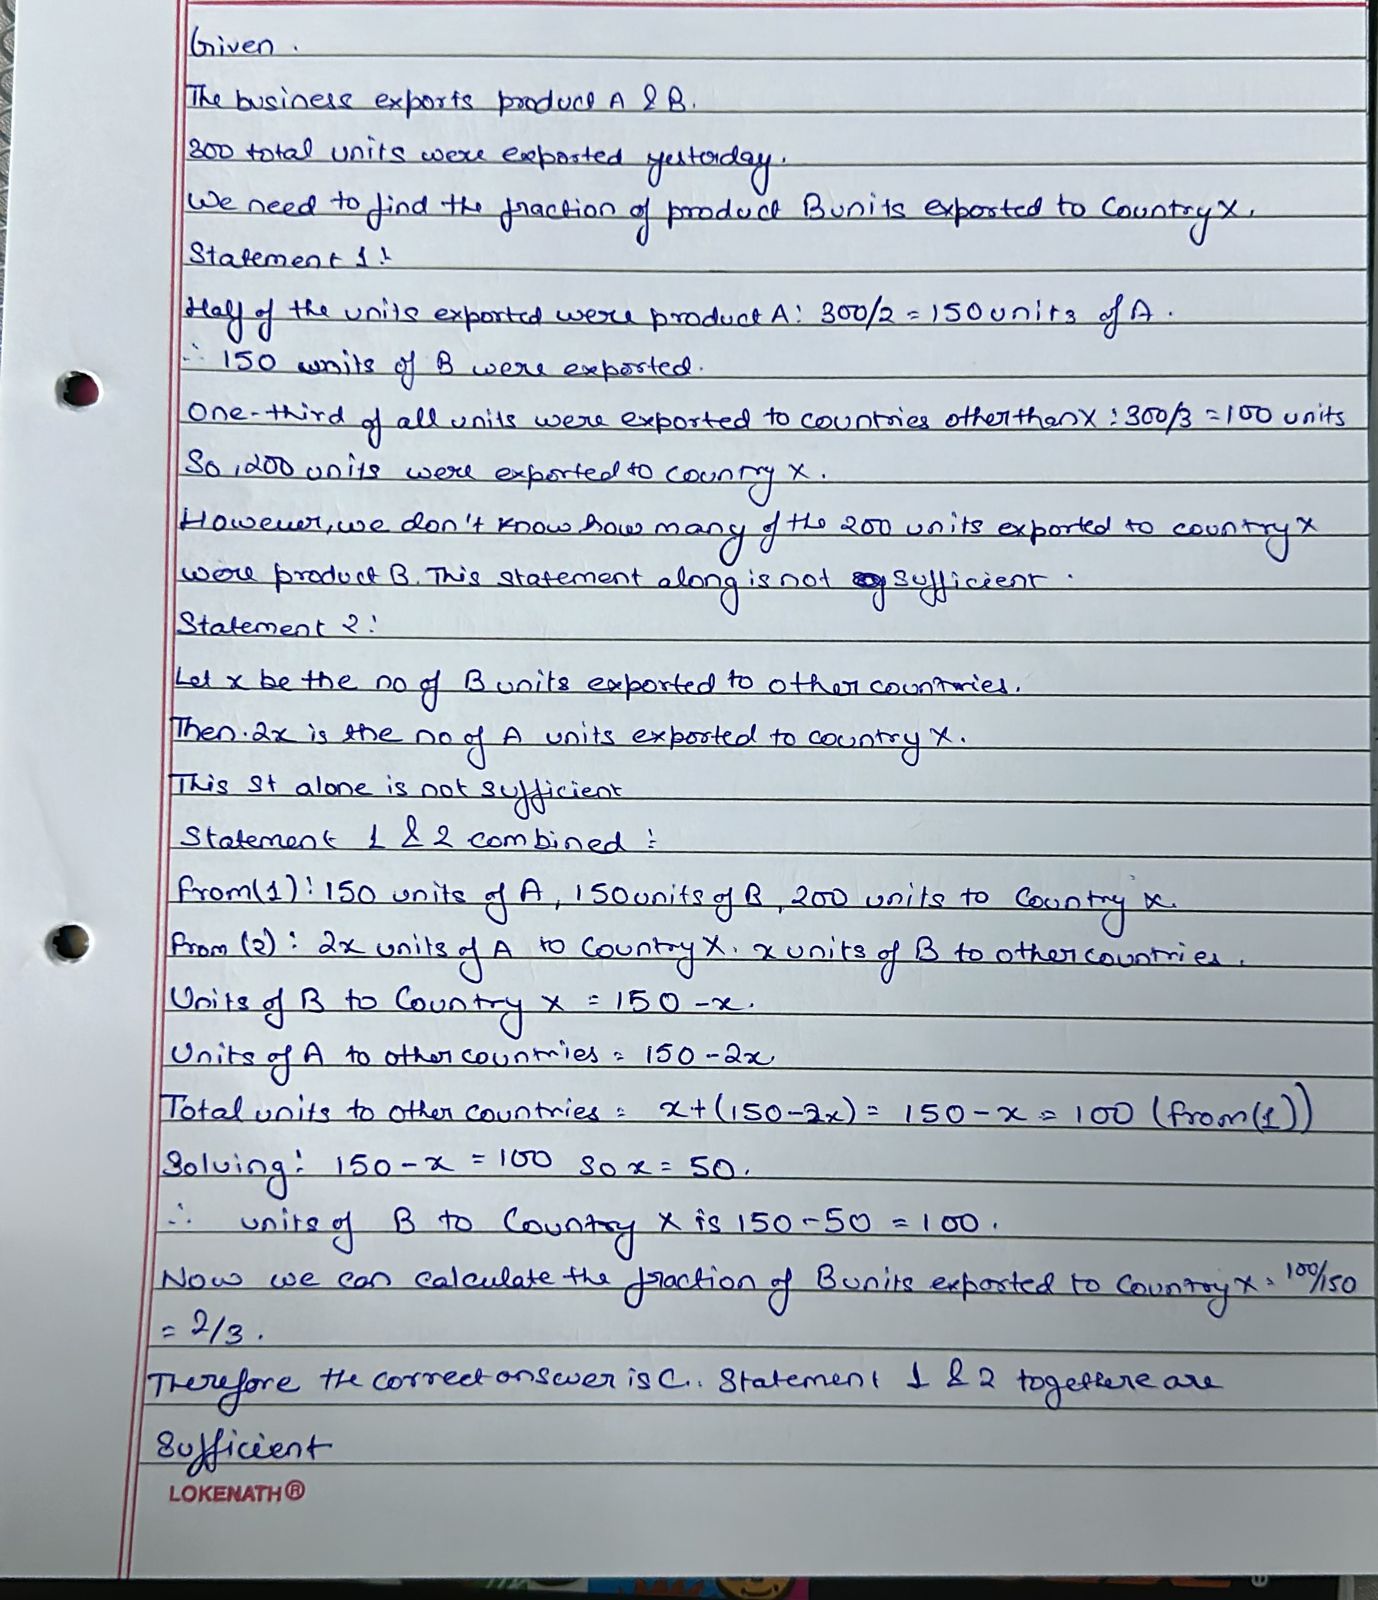 Given.
The business exports product A & B.
300 total units were exported yesterday.
We need to find the fraction of product B units exported to Country X.
Statement 1:
Half of the units exported were product A: 300/2 = 150 units of A.
∴ 150 units of B were exported.
One-third of all units were exported to countries other than X : 300/3 = 100 units
So, 200 units were exported to country X.
However, we don't know how many of the 200 units exported to country X
were product B. This statement along is not sufficient.
Statement 2:
Let x be the no of B units exported to other countries.
Then 2x is the no of A units exported to country X.
This St alone is not sufficient
Statement 1 & 2 combined :
From(1): 150 units of A, 150 units of B, 200 units to Country X.
From (2): 2x units of A to Country X. x units of B to other countries.
Units of B to Country X = 150 - x.
Units of A to other countries = 150 - 2x
Total units to other countries = x + (150 - 2x) = 150 - x = 100 (from(1))
Solving: 150 - x = 100 so x = 50.
∴ units of B to Country X is 150 - 50 = 100.
Now we can calculate the fraction of B units exported to Country X = 100/150
= 2/3.
Therefore the correct answer is C. Statement 1 & 2 togethere are
Sufficient
LOKENATH®